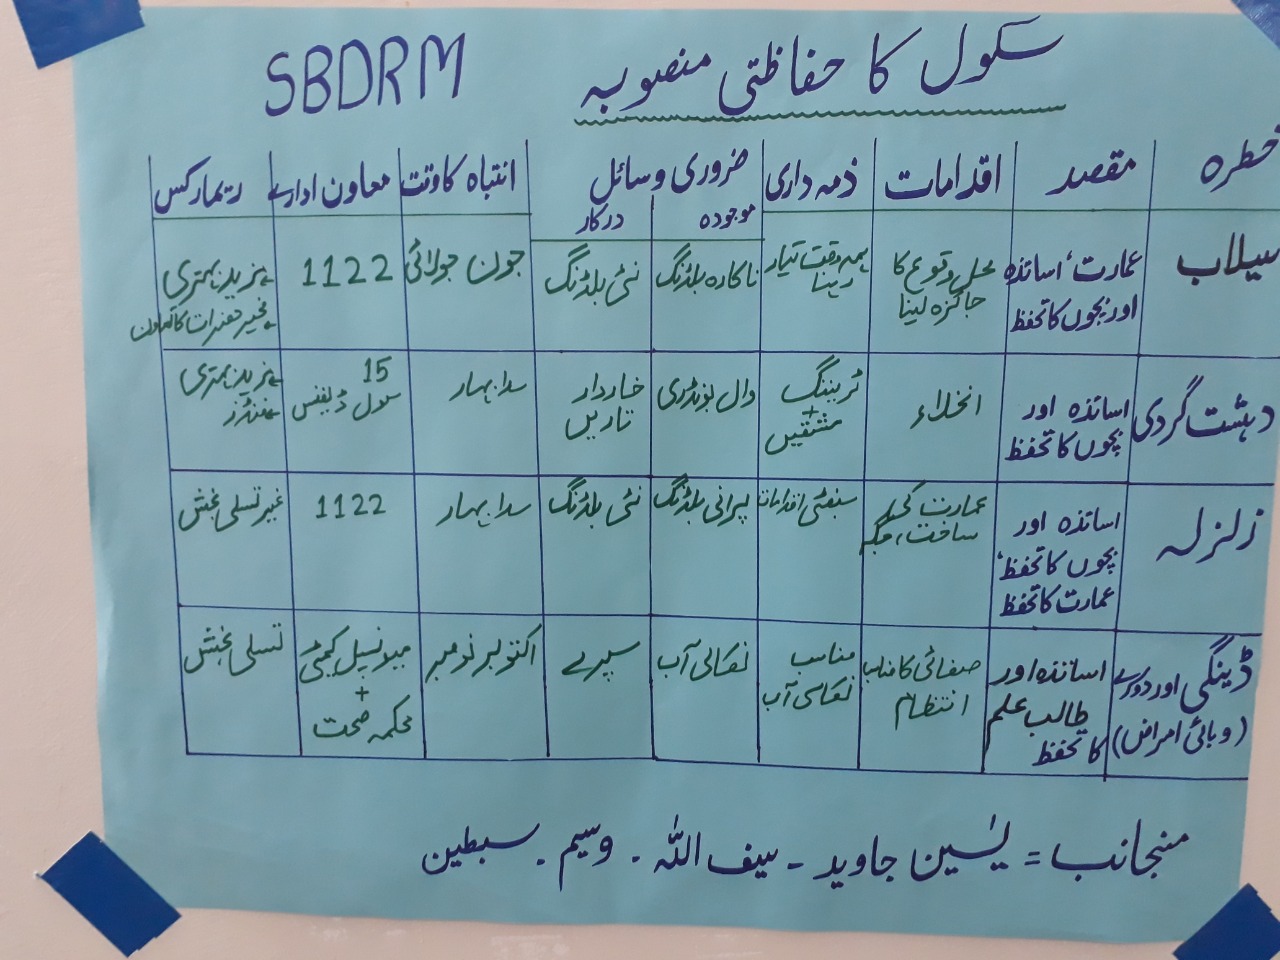 سکول کا حفاظتی منصوبہ SBDRM
خطرہ مقصد اقدامات ذمہ داری ضروری وسائل انتباہ کا وقت معاون ادارے ریمارکس
موجودہ درکار
سیلاب
عمارت، اساتذہ
اور بچوں کا تحفظ
محل وقوع کا
جائزہ لینا
ہمہ وقت تیار
رہنا
ناکارہ بلڈنگ
نئی بلڈنگ
جون جولائی
1122
مزید بہتری
مخیر حضرات کا تعاون
دہشت گردی
اساتذہ اور
بچوں کا تحفظ
انخلاء
ٹریننگ
+
مشقیں
وال بونڈری
خاردار
تاریں
سدا بہار
15
سول ڈیفنس
مزید بہتری
فنڈز
زلزلہ
اساتذہ اور
بچوں کا تحفظ،
عمارت کا تحفظ
عمارت کی
ساخت، جگہ
اقدامات
پرانی بلڈنگ
نئی بلڈنگ
سدا بہار
1122
غیر تسلی بخش
ڈینگی اور دوسرے
(وبائی امراض)
اساتذہ اور
طالب علم
کا تحفظ
صفائی کا مناسب
انتظام
مناسب
نکاسی آب
نکاسی آب
سپرے
اکتوبر نومبر
میونسپل کمیٹی
+
محکمہ صحت
تسلی بخش
منجانب = یٰسین جاوید - سیف اللہ - وسیم - سبطین